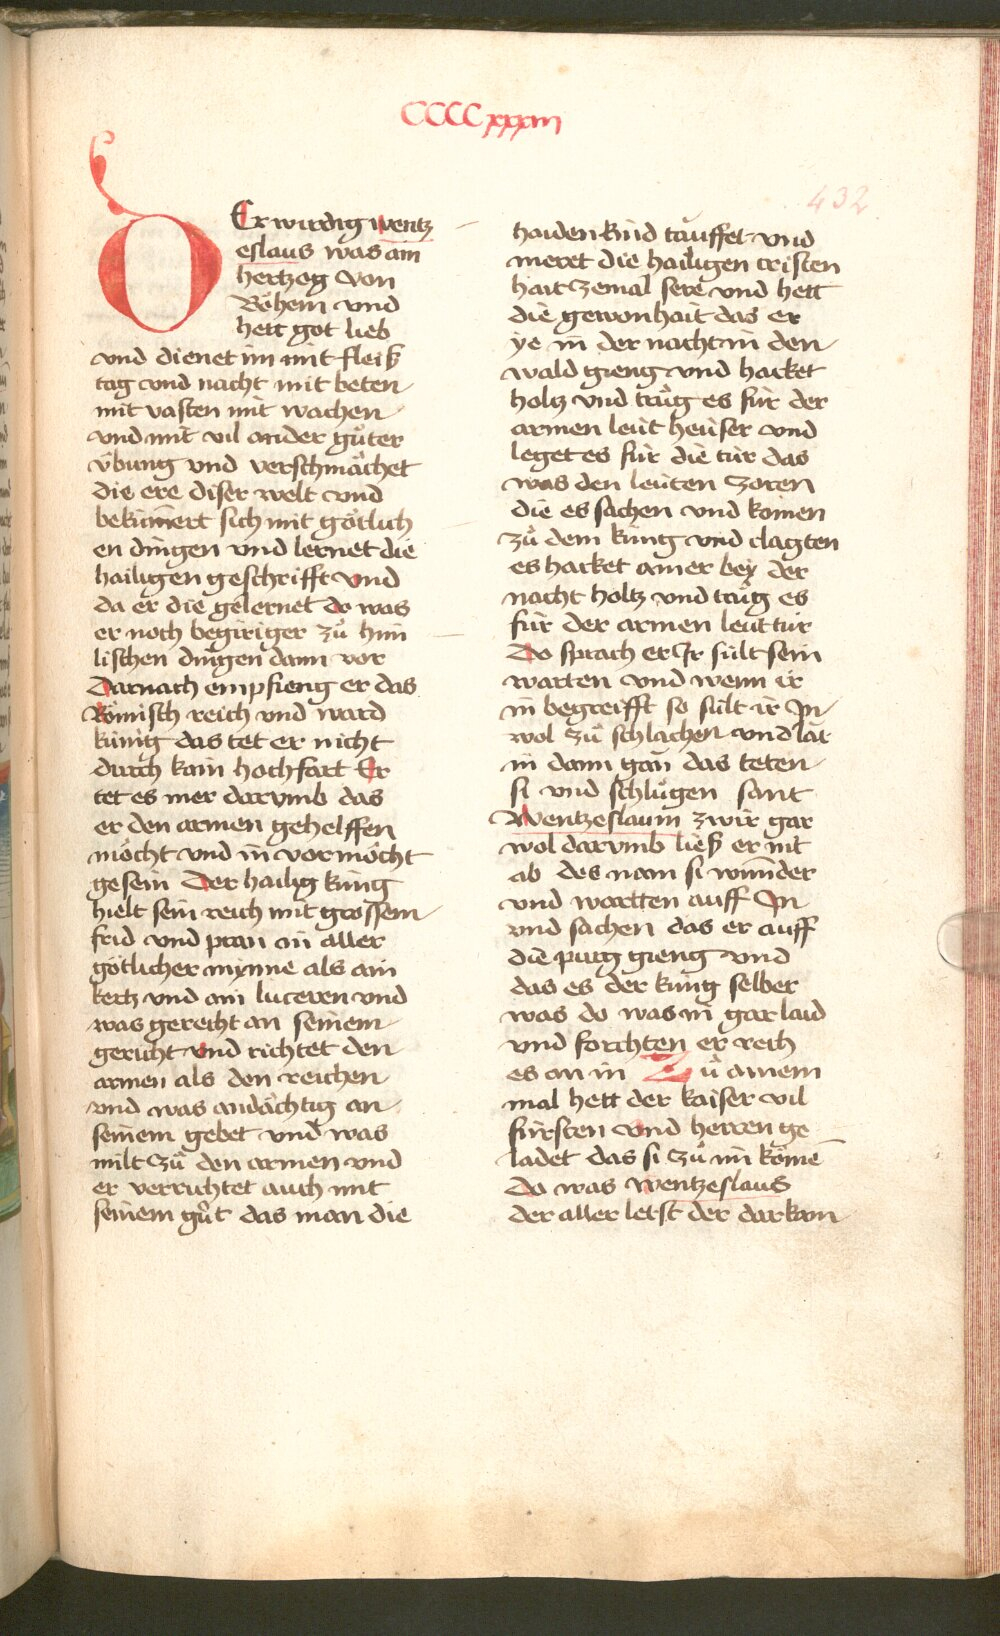 CCCCxxxiii
432
DEr wirdig wentz
eslaus was ain
hertzog von
Böhem vnd
hett got lieb
vnd dienet im mit fleiß
tag vnd nacht mit beten
mit vasten mit wachen
vnd mit vil ander gůter
v̈bung vnd verschmächet
die ere diser welt vnd
bekümert sich mit götlich
en dingen vnd lernet die
hailigen geschrifft vnd
da er die gelernet do was
er noch begiriger zů him
lischen dingen dann vor
Darnach empfieng er das
Römisch reich vnd ward
künig das tet er nicht
durch kain hochfart Er
tet es mer darvmb das
er den armen gehelffen
möcht vnd in vor möcht
gesein Der hailig küng
hielt sein reich mit grossem
frid vnd pran in aller
götlicher mynne als ain
kertz vnd ain lucern vnd
was gerecht an seinem
gericht vnd richtet den
armen als den reichen
vnd was andächtig an
seinem gebet vnd was
milt zů den armen vnd
er verrichtet auch mit
seinem gůt das man die
haiden kind tauffet vnd
meret die hailigen cristen
hait zemal sere vnd hett
die gewonhait das er
ye in der nacht in den
wald gieng vnd hacket
holtz vnd trůg es für der
armen leüt heüser vnd
leget es für die tür das
was den leüten zoren
die es sachen vnd komen
zů dem küng vnd clagten
es hacket ainer bey der
nacht holtz vnd trůg es
für der armen leüt tür
Do sprach er Ir sült sein
warten vnd wenn ir
in begreifft so sült ir In
wol zů schlachen vnd lat
in dann gan das teten
si vnd schlůgen sant
Wentzeslaum zwir gar
wol darvmb ließ er nit
ab des nam si wunder
vnd wartten auff In
vnd sachen das er auff
die purg gieng vnd
das es der küng selber
was do was in gar laid
vnd forchten er rech
es an in Zů ainem
mal hett der kaiser vil
fürsten vnd herren ge
ladet das si zů im kömē
Do was wentzeslaus
der aller letst der dar kam